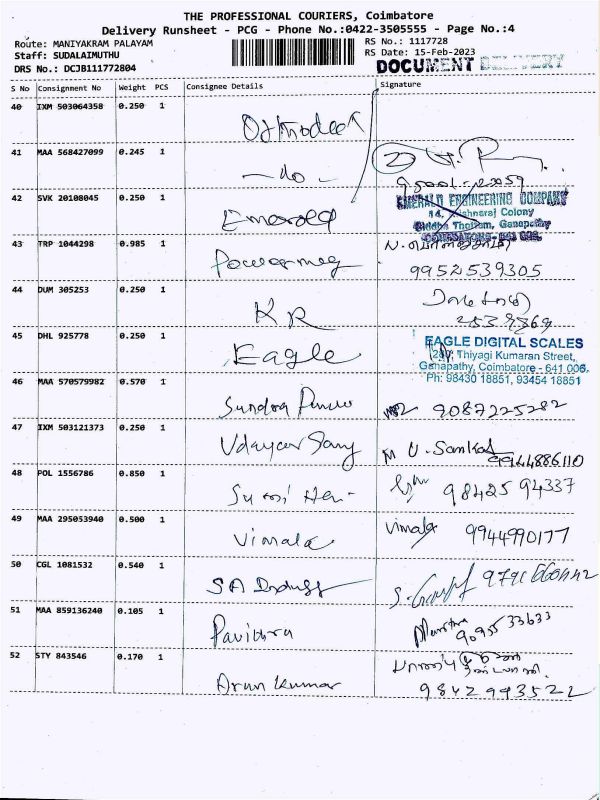 THE PROFESSIONAL COURIERS, Coimbatore
Delivery Runsheet - PCG - Phone No.:0422-3505555 - Page No.:4
Route: MANIYAKRAM PALAYAM
Staff: SUDALAIMUTHU
DRS No.: DCJB111772804
RS No.: 1117728
RS Date: 15-Feb-2023
DOCUMENT DELIVERY
S No Consignment No Weight PCS Consignee Details Signature
40 IXM 503064358 0.250 1
41 MAA 568427099 0.245 1 -do-
42 SVK 20108045 0.250 1 Emerald
EMERALD ENGINEERING COMPANY
14, Krishnaraj Colony
Siddha Thottam, Ganapathy
COIMBATORE - 641 006.
43 TRP 1044298 0.985 1 Powermeg 9952539305
44 DUM 305253 0.250 1 KR
45 DHL 925778 0.250 1 Eagle
EAGLE DIGITAL SCALES
Thiyagi Kumaran Street,
Ganapathy, Coimbatore - 641 006.
Ph: 98430 18851, 93454 18851
46 MAA 570579982 0.570 1 Sundra 9087225282
47 IXM 503121373 0.250 1 Udayar M U. Sankar 9944886110
48 POL 1556786 0.850 1 98425 94337
49 MAA 295053940 0.500 1 Vimala Vimala 9944990177
50 CGL 1081532 0.540 1 SA
51 MAA 859136240 0.105 1 Pavithra 9095533633
52 STY 843546 0.170 1 Arun Kumar
9842993522